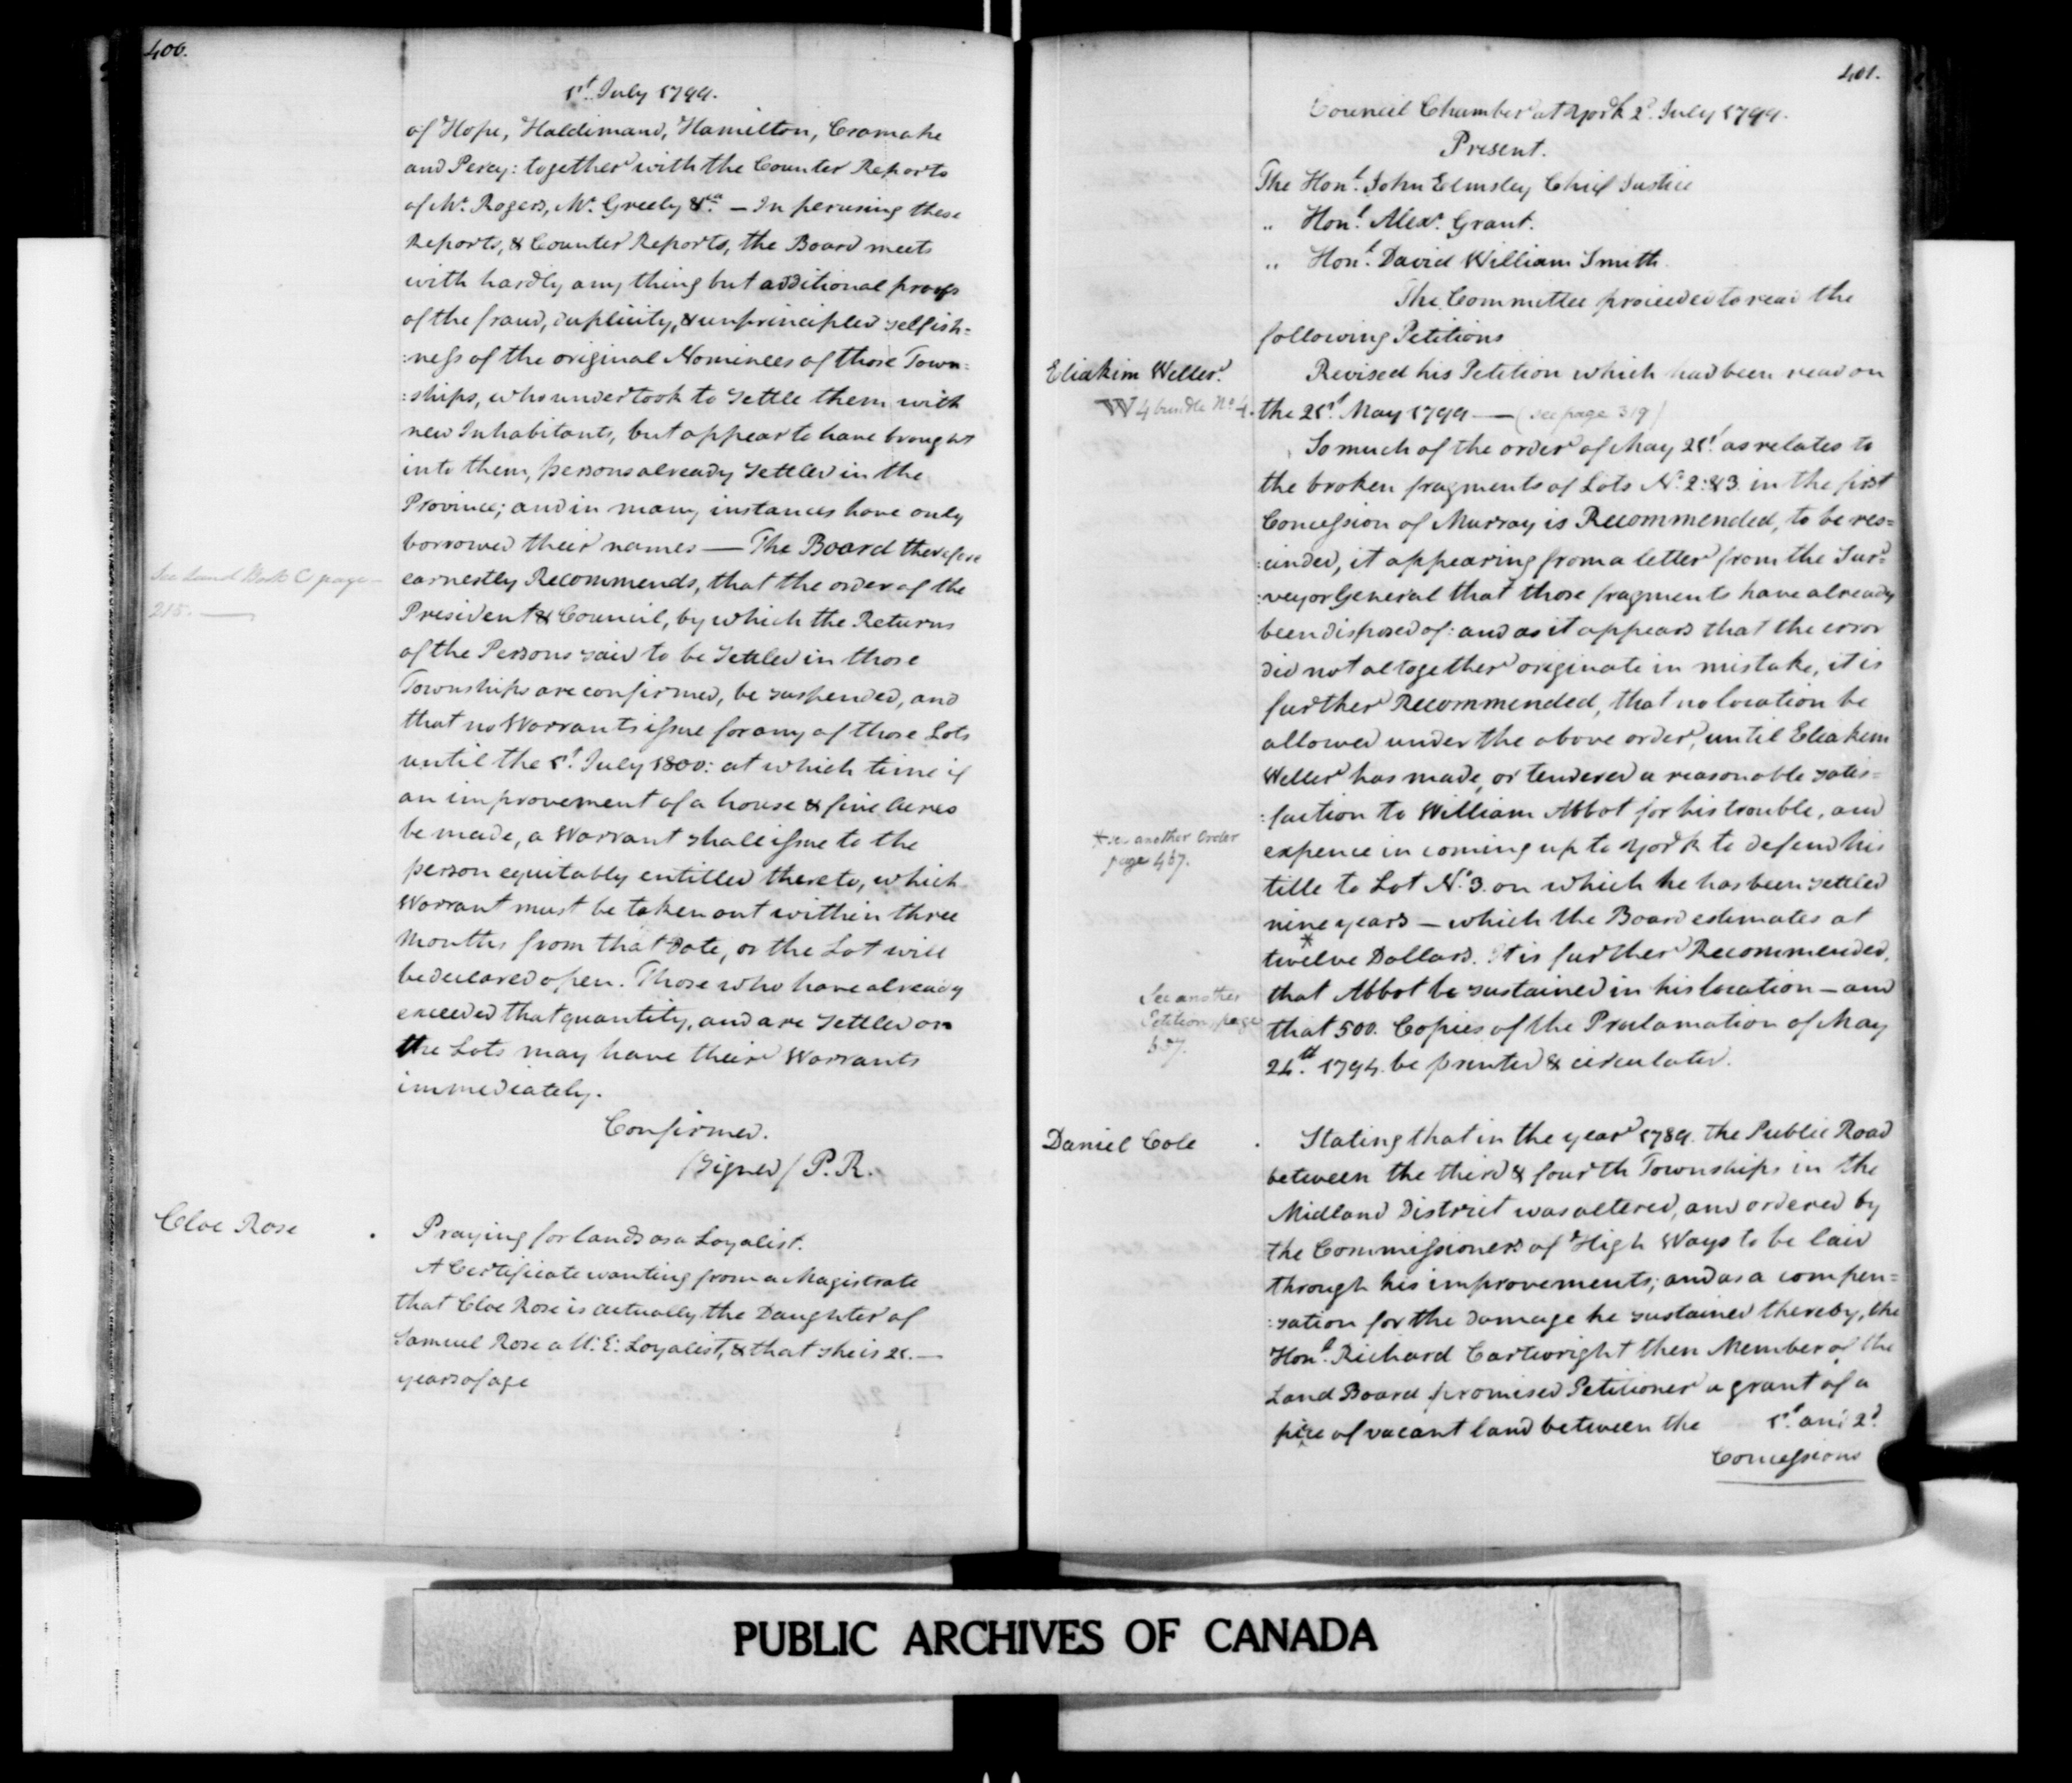 400.
1st July 1799.
of Hope, Haldimand, Hamilton, Cramahe
and Percy: together with the Counter Reports
of Mr. Rogers, Mr. Greely &ca. — In perusing these
Reports, & Counter Reports, the Board meets
with hardly any thing but additional proofs
of the fraud, duplicity, & unprincipled selfish=
:ness of the original Nominees of those Town=
:ships, who undertook to settle them with
new Inhabitants, but appear to have brought
into them, persons already settled in the
Province; and in many instances have only
borrowed their names — The Board therefore
See Land Book C page
215. —
earnestly Recommends, that the order of the
President & Council, by which the Returns
of the Persons said to be settled in those
Townships are confirmed, be suspended, and
that no Warrants issue for any of those Lots
until the 1st. July 1800: at which time if
an improvement of a house & five Acres
be made, a Warrant shall issue to the
person equitably entitled thereto, which
Warrant must be taken out within three
Months from that Date, or the Lot will
be declared open. Those who have already
exceeded that quantity, and are settled on
the Lots may have their Warrants
immediately.
Confirmed.
/Signed/ P.R.
Cloe Rose
Praying for lands as a Loyalist.
A Certificate wanting from a Magistrate
that Cloe Rose is actually the Daughter of
Samuel Rose a U: E: Loyalist, & that she is 21. —
years of age
401.
Council Chamber at York 2d. July 1799.
Present.
The Honl. John Elmsley Chief Justice
„ Honl. Alexr. Grant.
„ Honl. David William Smith
The Committee proceeded to read the
following Petitions
Eliakim Weller.
W 4 bundle No 4.
Revised his Petition which had been read on
the 21st. May 1799 — (see page 319)
So much of the order of May 21st as relates to
the broken fragments of Lots No. 2: & 3. in the first
Concession of Murray is Recommended, to be res=
:cinded, it appearing from a letter from the Sur=
:veyor General that those fragments have already
been disposed of: and as it appears that the error
did not altogether originate in mistake, it is
further Recommended, that no location be
allowed under the above order, until Eliakim
Weller has made, or tendered a reasonable satis=
:faction to William Abbot for his trouble, and
* see another Order
page 467.
expence in coming up to York to defend his
title to Lot No. 3. on which he has been settled
nine years — which the Board estimates at
*
twelve Dollars. It is further Recommended,
See another
Petition page
that Abbot be sustained in his location — and
that 500. Copies of the Proclamation of May
be printed & circulated.
Daniel Cole
Stating that in the year 1789. the Public Road
between the third & fourth Townships in the
Midland District was altered, and ordered by
the Commissioners of High Ways to be laid
through his improvements; and as a compen=
:sation for the damage he sustained thereby, the
Honl. Richard Cartwright then Member of the
Land Board promised Petitioner a grant of a
piece of vacant land between the 1st. and 2d.
Concessions
PUBLIC ARCHIVES OF CANADA